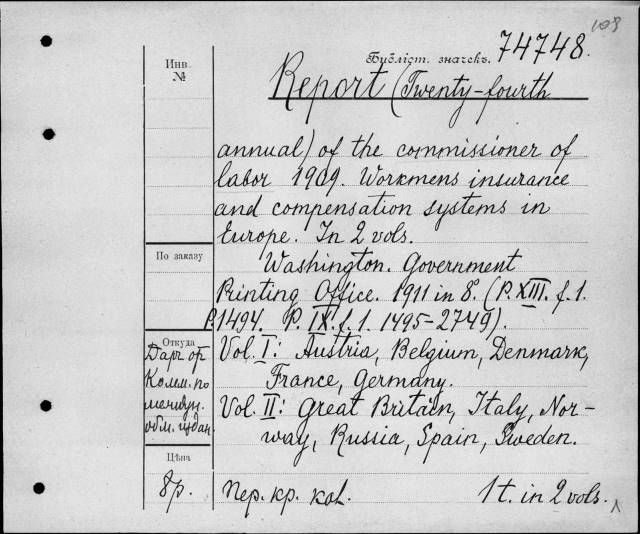 108
Библіот. значекъ. 74748.
Инв.
№
Report (Twenty-fourth
annual) of the commissioner of
labor 1909. Workmens insurance
and compensation systems in
Europe. In 2 vols.
По заказу
Washington. Government
Printing Office. 1911 in 8°. (P. XIII. f. 1.
P. 1494. P. IX. f. 1. 1495-2749).
Откуда
Даръ от
Комм. по
междун.
обм. издан.
Vol. I: Austria, Belgium, Denmark,
France, Germany.
Vol. II: Great Britain, Italy, Nor-
way, Russia, Spain, Sweden.
Цѣна
8р.
Пер. кр. кол.
1 t. in 2 vols.